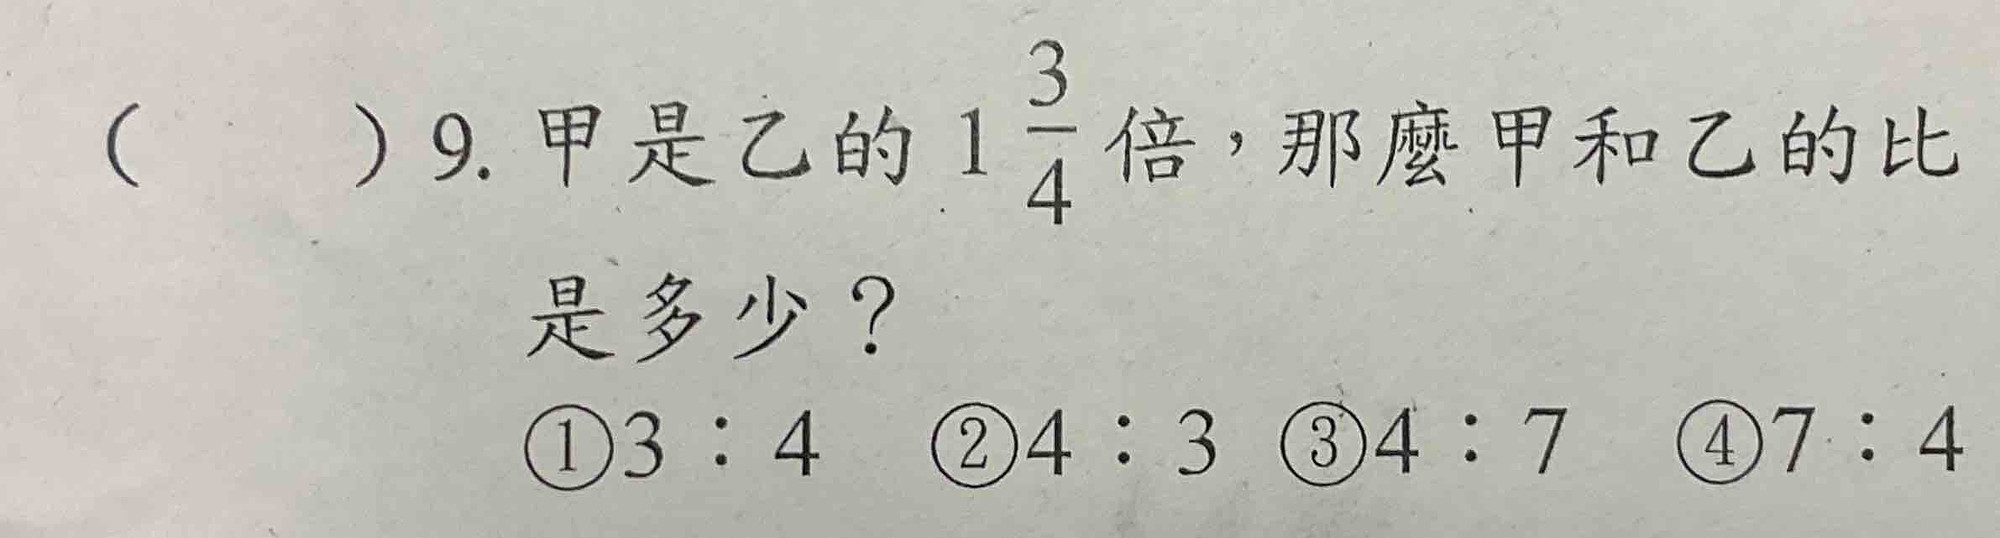 (　　) 9. 甲是乙的 1 3/4 倍，那麼甲和乙的比
是多少？
①3：4　②4：3　③4：7　④7：4